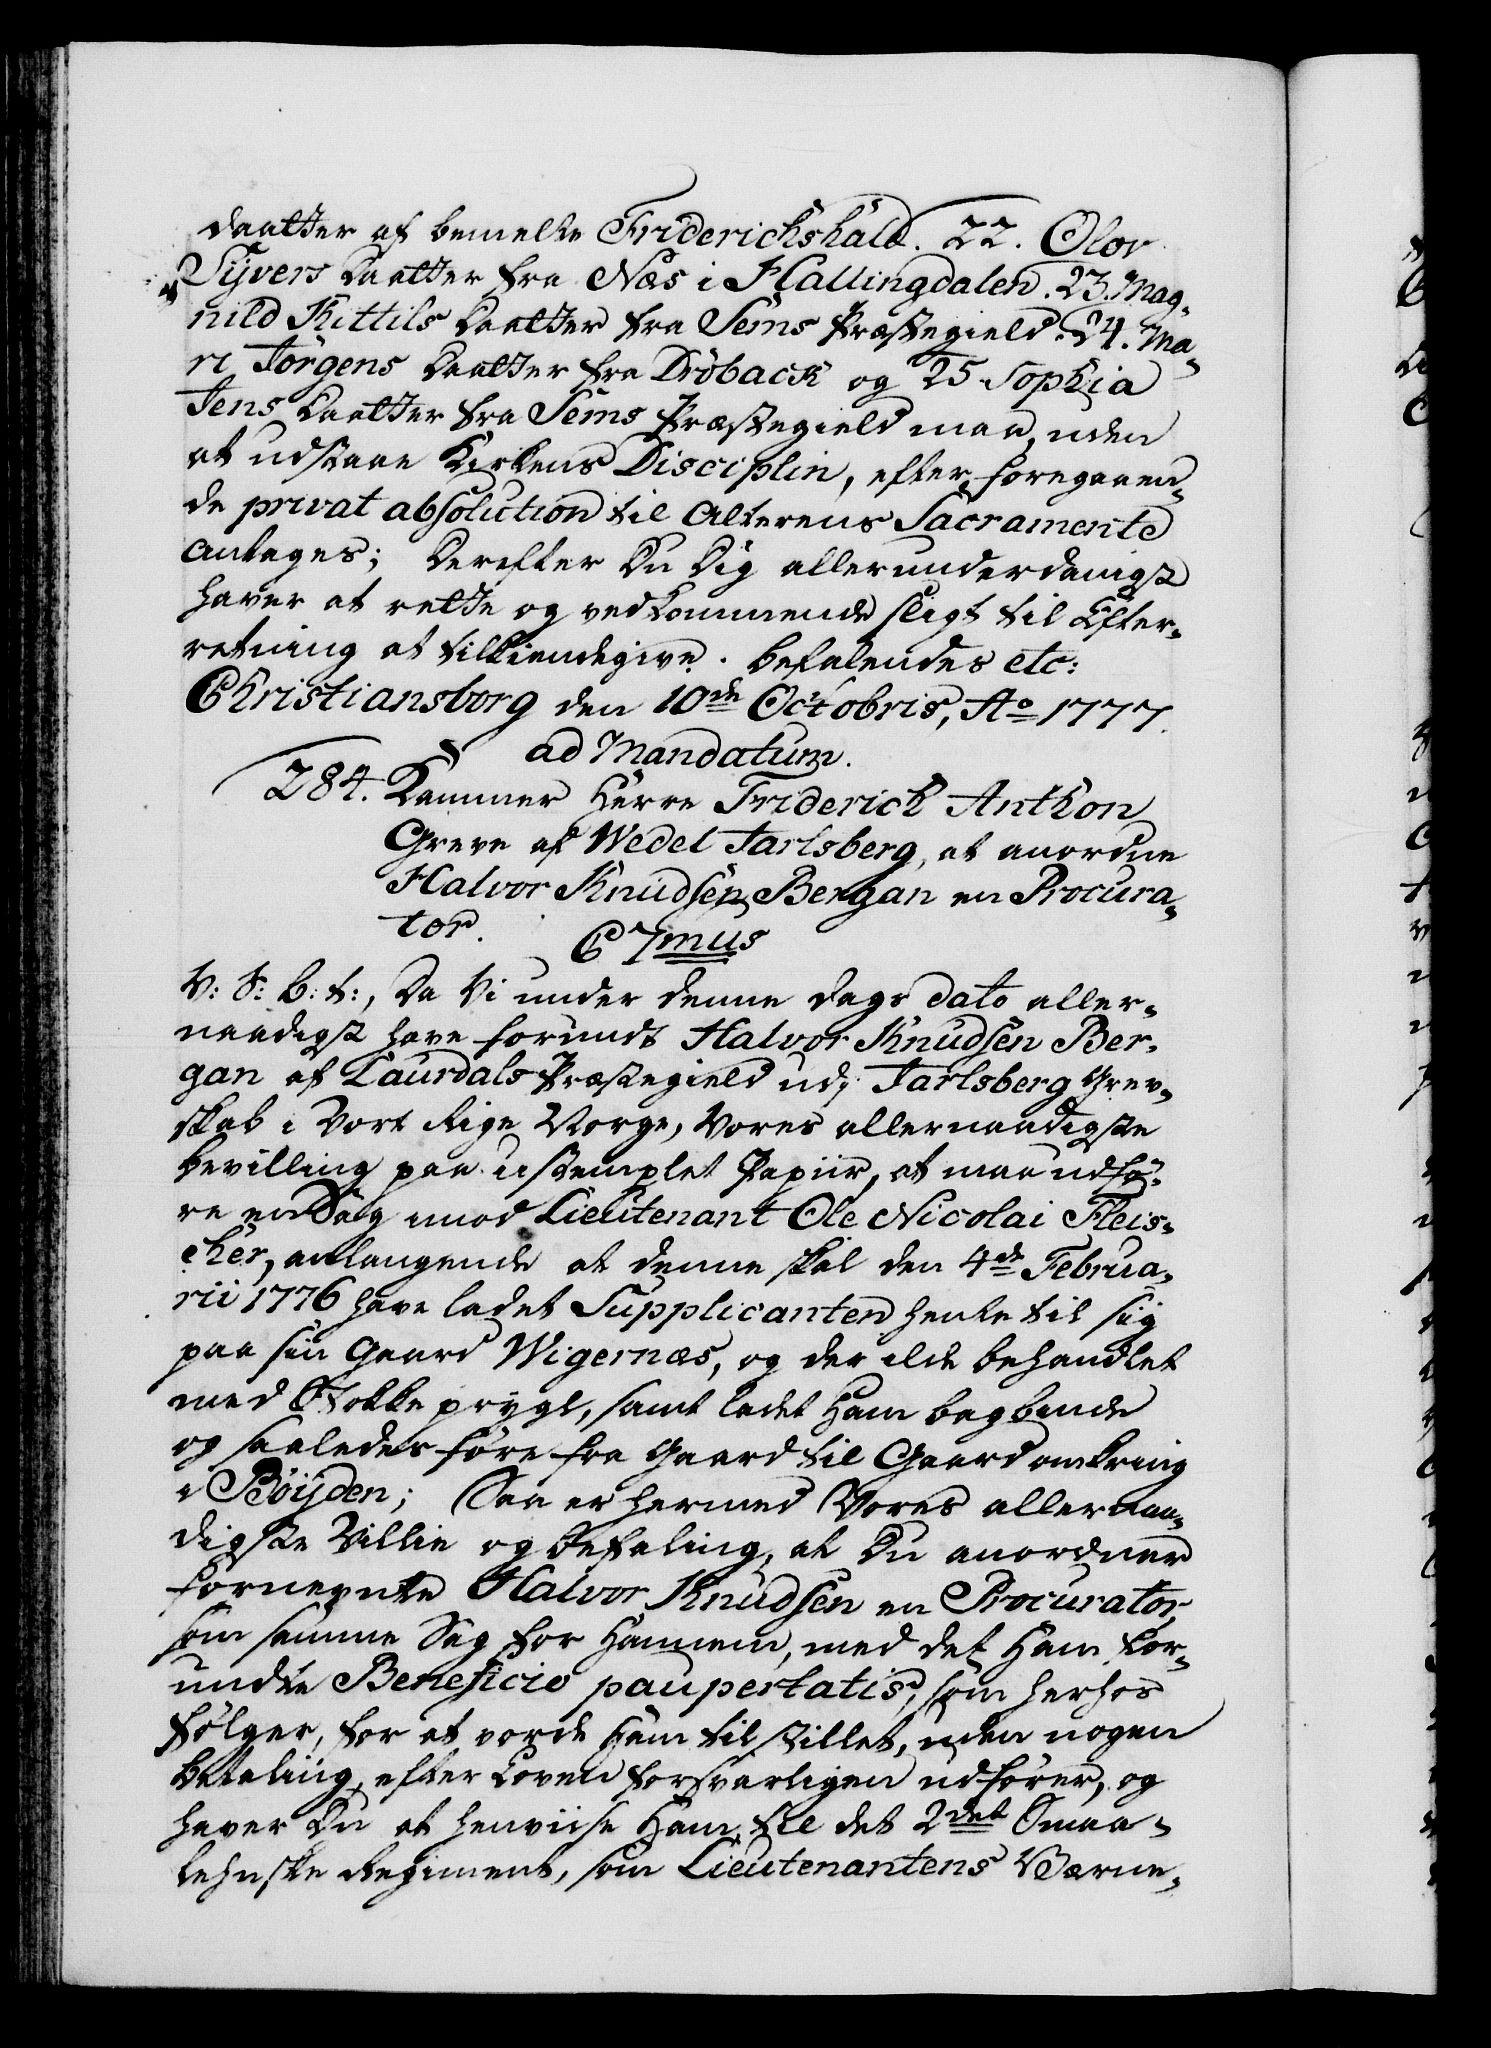 daatter af bemelte Friderichshald. 22. Olov
Sijvers Daatter fra Næs i Hallingdalen. 23. Mag-
nild Kittils Daatter fra Sems Præstegield. 24. Ma-
ri Jørgens Daatter fra Drøback og 25 Sophia
Jens Daatter fra Sems Præstegield maa, uden
at udstaae Kirkens Disciplin, efter foregaaen-
de privat absolution til Alterens Sacramente
antages; Derefter Du Dig allerunderdanigst
haver at rette og vedkommende sligt til Efter-
retning at tilkiendegive. Befalendes etc:
Christiansborg den 10de Octobris, Ao 1777.
ad Mandatum.
284. Kammer Herre Friderich Anthon
Greve af Wedel Jarlsberg, at anordne
Halvor Knudsen Bergan en Procura-
tor. C 7mus
V: S: B: t:, Da Vi under denne Dags dato aller-
naadigst have forundt Halvor Knudsen Ber-
gan af Laurdals Præstegield udj Jarlsberg Grev-
skab i Vort Rige Norge, Vores allernaadigste
Bevilling paa ustemplet Papiir, at maa udfø-
re en Sag imod Lieutenant Ole Nicolai Fleis-
cher, anlangende at denne skal den 4de Februa-
rii 1776 have ladet Supplicanten hente til sig
paa sin Gaard Wigernæs, og der ilde behandlet
med Stokke prygl, samt ladet Ham bagbinde
og saaledes føre fra Gaard til Gaard omkring
i Bøijden; Saa er hermed Vores allernaa-
digste Villie og Befaling, at Du anordner
fornevnte Halvor Knudsen en Procurator,
som samme Sag for Hannem, med det Ham for-
undte Beneficio paupertatis, som herhos
følger, for at vorde Ham tilstillet, uden nogen
Betaling, efter Loven forsvarligen udfører, og
haver Du at henviise Ham til det 2det Smaa-
lehnske Regiment, som Lieutenantens Værne-